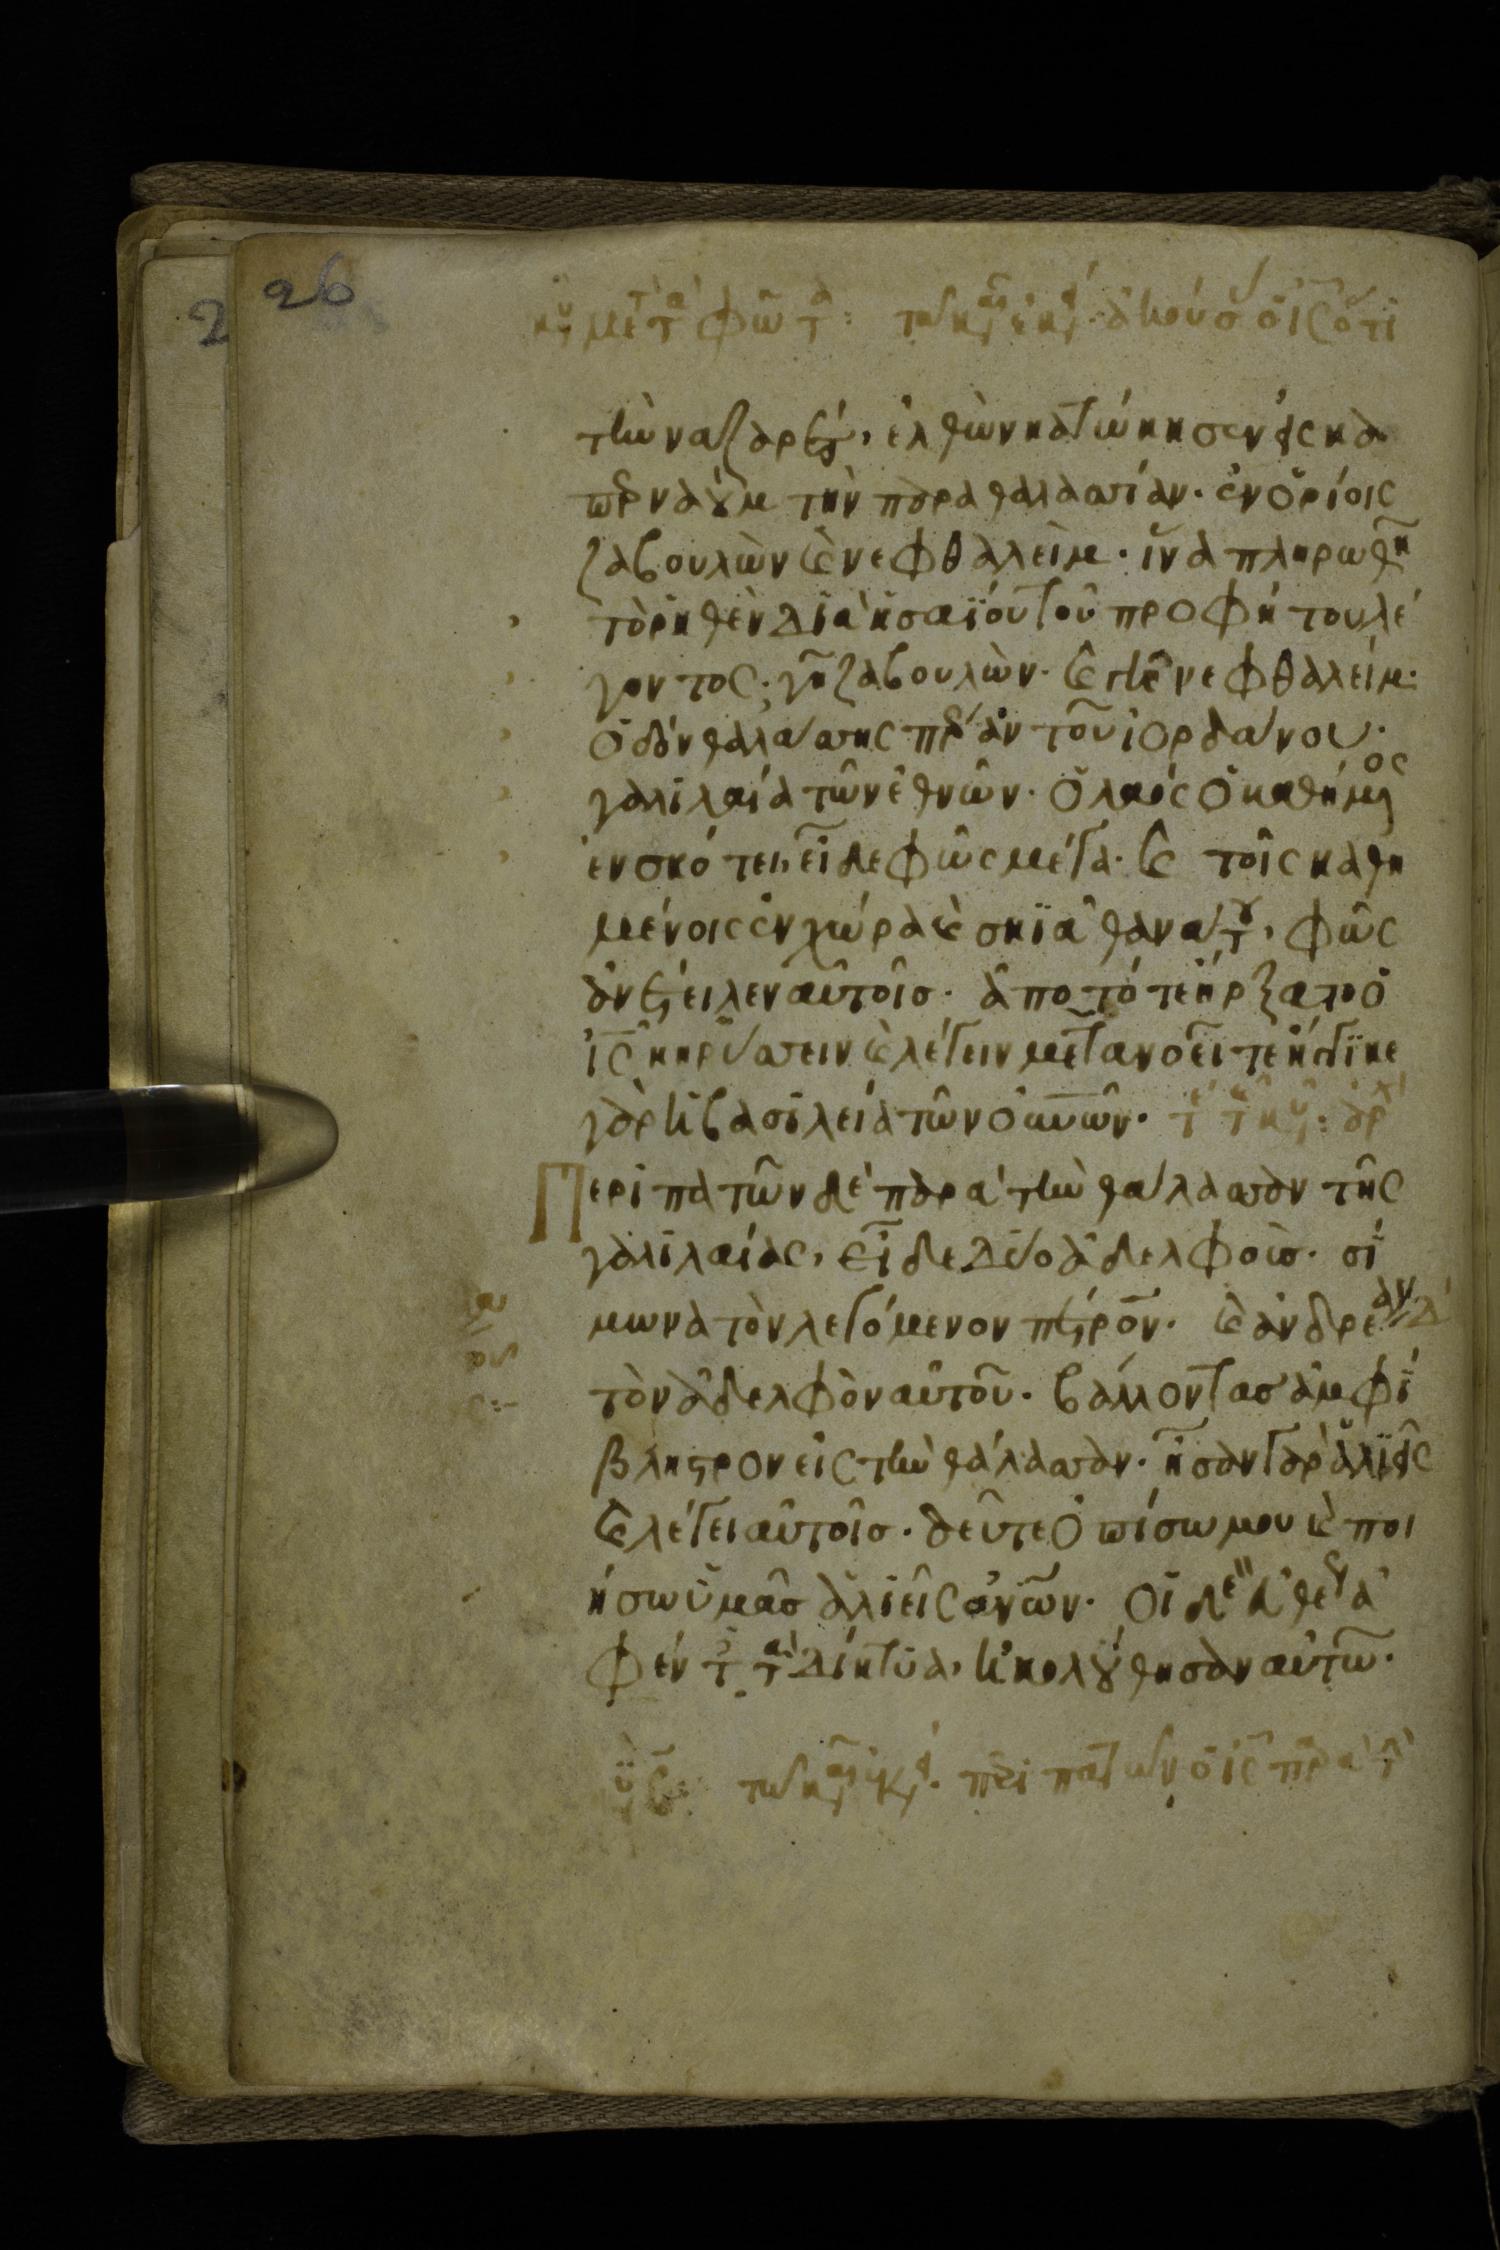 26
2
κυ μετ τα φωτ: τω καιρ εκ. ἀκούσ ὁ ις ὅτι
τὴν ναζαρέτ, ἐλθὼν κατώκησεν εἰς κα
περναοὺμ τὴν παραθαλασσίαν· ἐν ὁρίοις
ζαβουλὼν καὶ νεφθαλείμ· ἵνα πληρωθῆ
τὸ ῥηθὲν διὰ ἡσαΐου τοῦ προφήτου λέ
γοντος· γῆ ζαβουλὼν· καὶ γῆ νεφθαλείμ·
ὁδὸν θαλάσσης πέραν τοῦ ἰορδάνου·
γαλιλαία τῶν ἐθνῶν· ὁ λαὸς ὁ καθήμενος
ἐν σκότει, εἶδε φῶς μέγα· καὶ τοῖς καθη
μένοις ἐν χώρα καὶ σκϊᾶ θανάτου, φῶς
ἀνέτειλεν αὐτοῖς· ἀπὸ τότε ἤρξατο ὁ
ις κηρύσσειν καὶ λέγειν μετανοεῖτε ἤγγϊκε
γὰρ ἡ βασιλεία τῶν οὐνῶν· τε τ κυ: ἀρχ
Περιπατῶν δὲ παρὰ τὴν θάλασσαν τῆς
γαλιλαίας, εἶδε δύο ἀδελφοὺς· σί
μωνα τὸν λεγόμενον πέτρον· καὶ ἀνδρέαν
τὸν ἀδελφὸν αὐτοῦ· βάλλοντας ἀμφί
βληστρον εἰς τὴν θάλασσαν· ἦσαν γὰρ ἁλιεῖς
καὶ λέγει αὐτοῖς· δεῦτε ὀπίσω μου καὶ ποι
ήσω ὑμᾶς ἁλιεῖς ἀνῶν· οἱ δὲ εὐθέως ἀ
φέντες τὰ δίκτυα, ἠκολούθησαν αὐτῶ·
τω καιρ εκ. περιπατων ὁ ις παρὰ τ